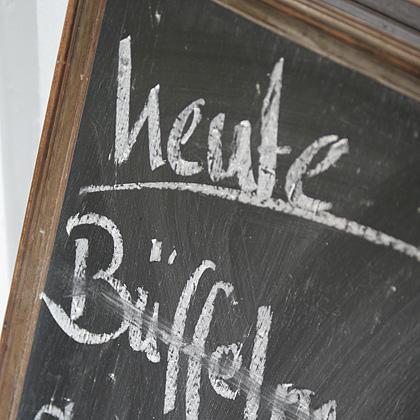 heute
Büffel